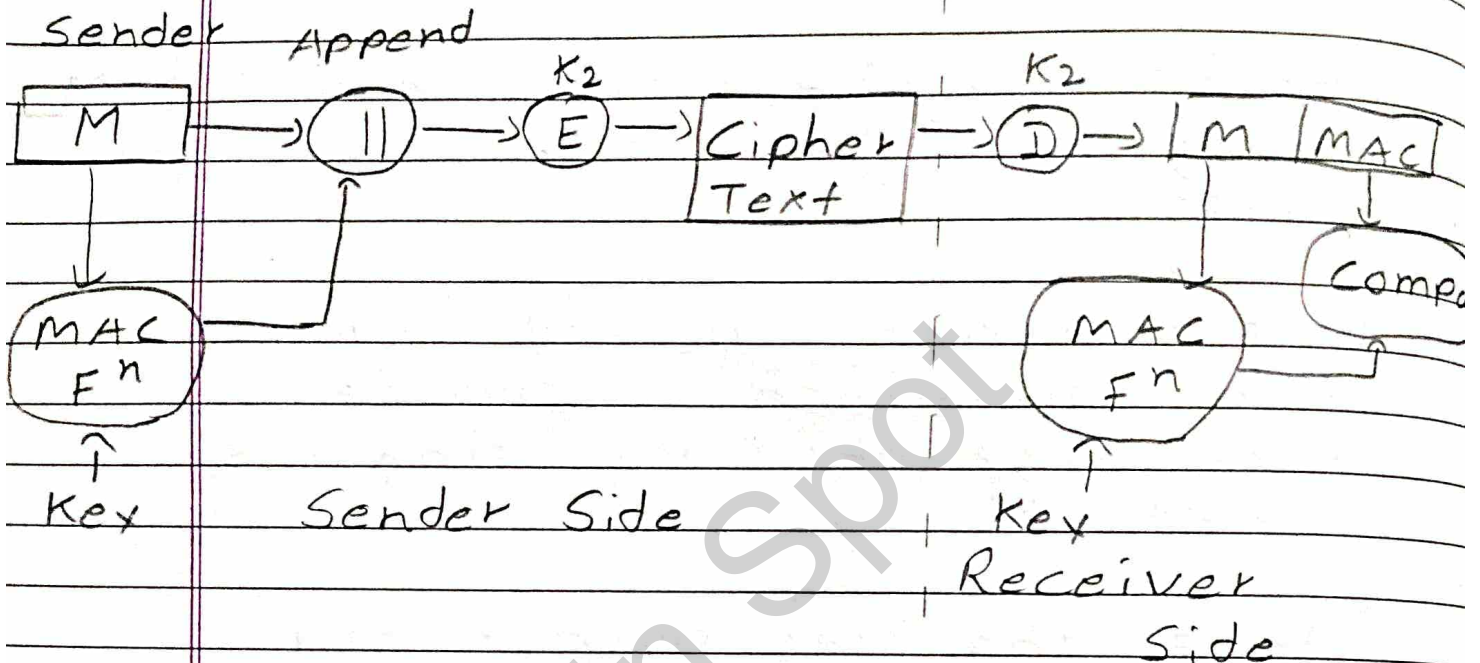 Sender Append
K2 K2
M || E Cipher D M MAC
Text
Compa
MAC MAC
Fn Fn
Key Sender Side Key
Receiver
Side
in Spot